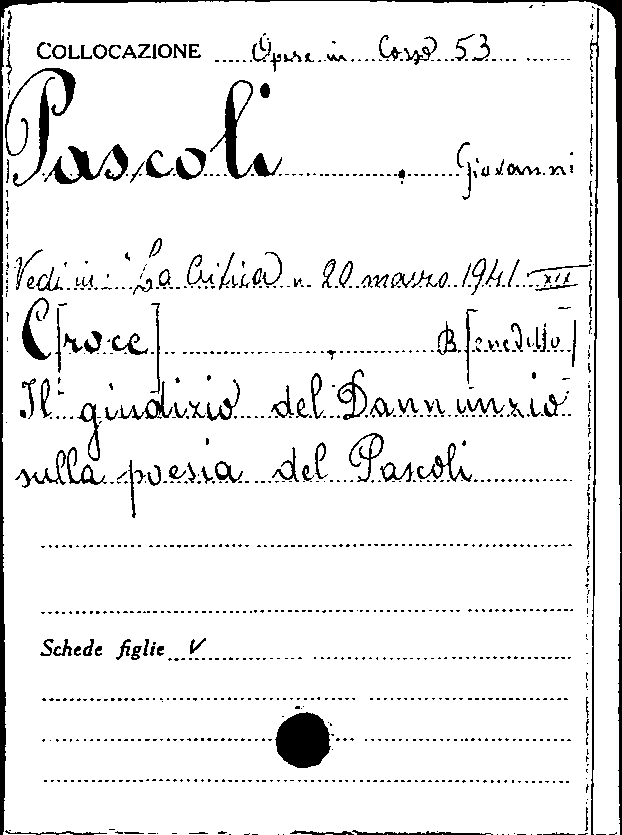 COLLOCAZIONE Opere in Corso 53
Pascoli, Giovanni
Vedi in: "La Critica" 20 marzo 1941 XIX
C[roce], B[enedetto]
Il giudizio del Dannunzio
sulla poesia del Pascoli
Schede figlie V